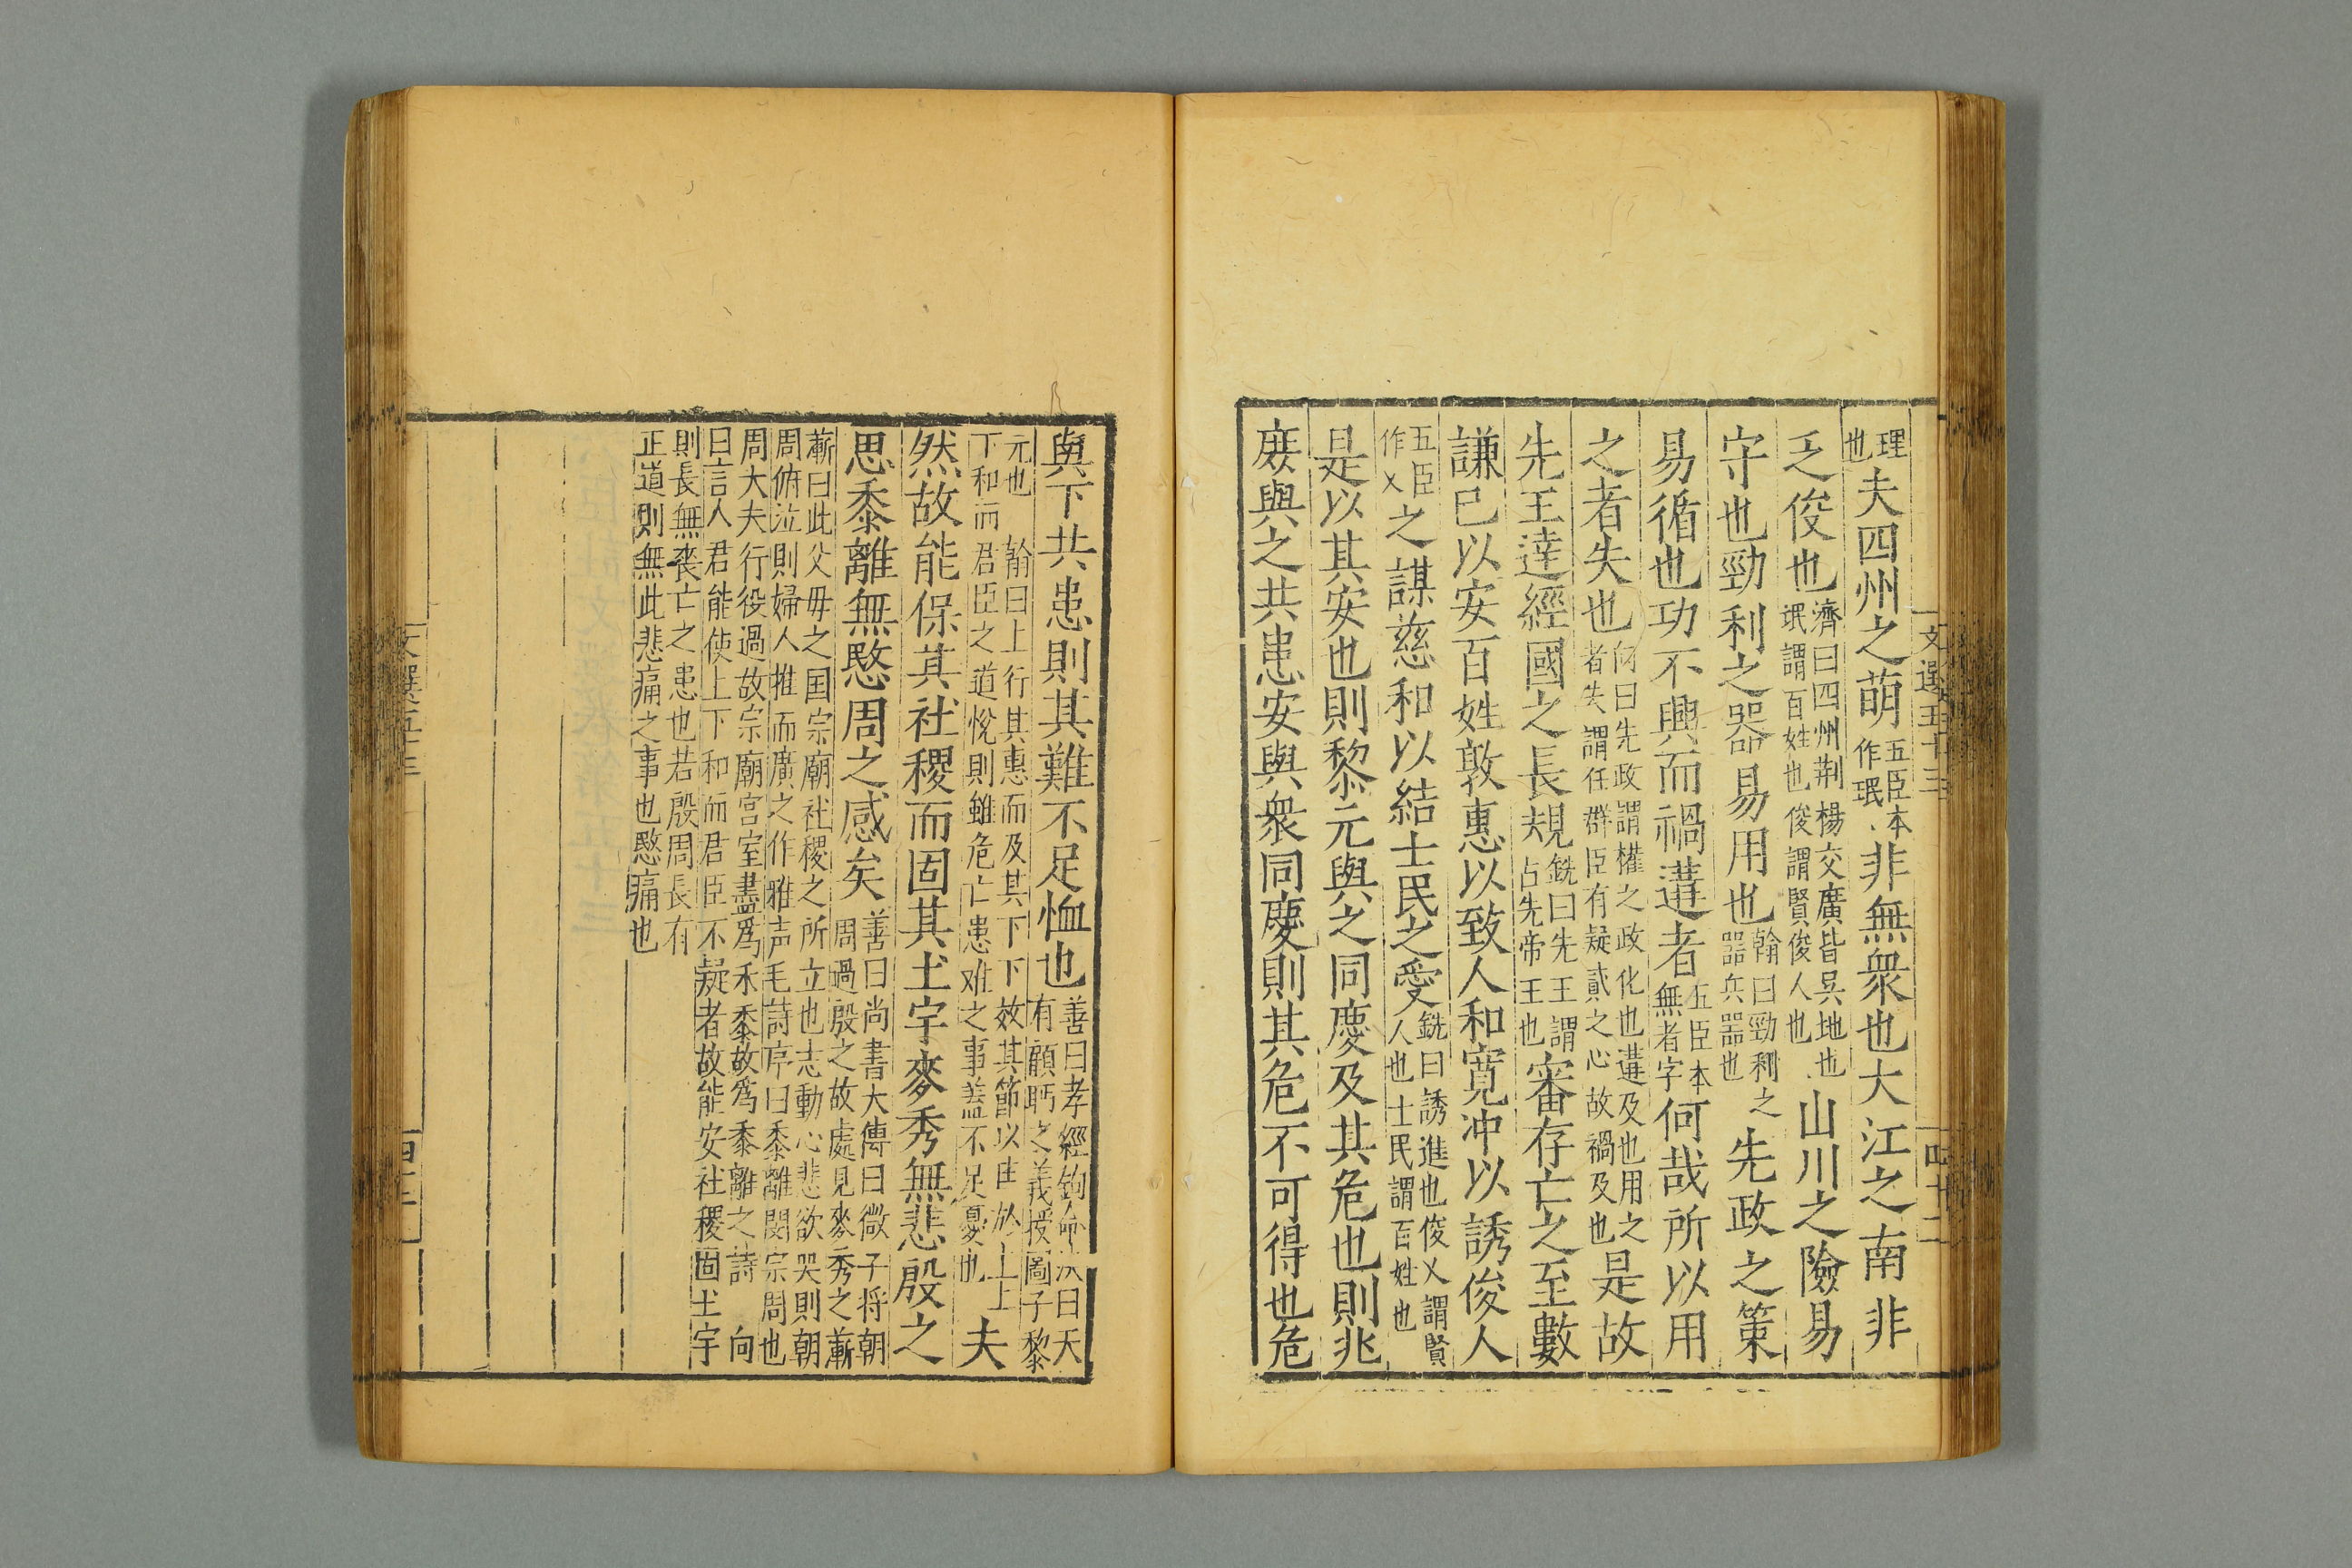 理也夫四州之萌五臣本作珉非無衆也大江之南非
乏俊也濟曰四州荆楊交廣皆吳地也珉謂百姓也俊謂賢俊人也山川之險易
守也勁利之器易用也翰曰勁利之器兵噐也先政之策
易循也功不興而禍遘者五臣本無者字何哉所以用
之者失也向曰先政謂權之政化也遘及也用之者失謂任群臣有疑貳之心故禍及也是故
先王達經國之長規銑曰先王謂古先帝王也審存亡之至數
謙已以安百姓敦惠以致人和寬冲以誘俊人
五臣作乂之謀慈和以結士民之愛銑曰誘進也俊乂謂賢人也士民謂百姓也
是以其安也則黎元與之同慶及其危也則兆
庶與之共患安與衆同慶則其危不可得也危
與下共患則其難不足恤也善曰孝經鉤命决曰天有顧眄之義授圖子黎
元也 翰曰上行其惠而及其下下效其節以由於上上下和而君臣之道悅則雖危亡患难之事盖不足憂也夫
然故能保其社稷而固其土宇麥秀無悲殷之
思黍離無愍周之感矣善曰尚書大傳曰微子将朝周過殷之故處見麥秀之蔪
蔪曰此父毋之国宗廟社稷之所立也志動心悲欲哭則朝周俯泣則婦人推而廣之作雅声毛詩序曰黍離閔宗周也
周大夫行役過故宗廟宫室盡爲禾黍故爲黍離之詩 向曰言人君能使上下和而君臣不疑者故能安社稷固土宇
則長無喪亡之患也若殷周長有正道則無此悲痛之事也愍痛也
文選五十三
四十二